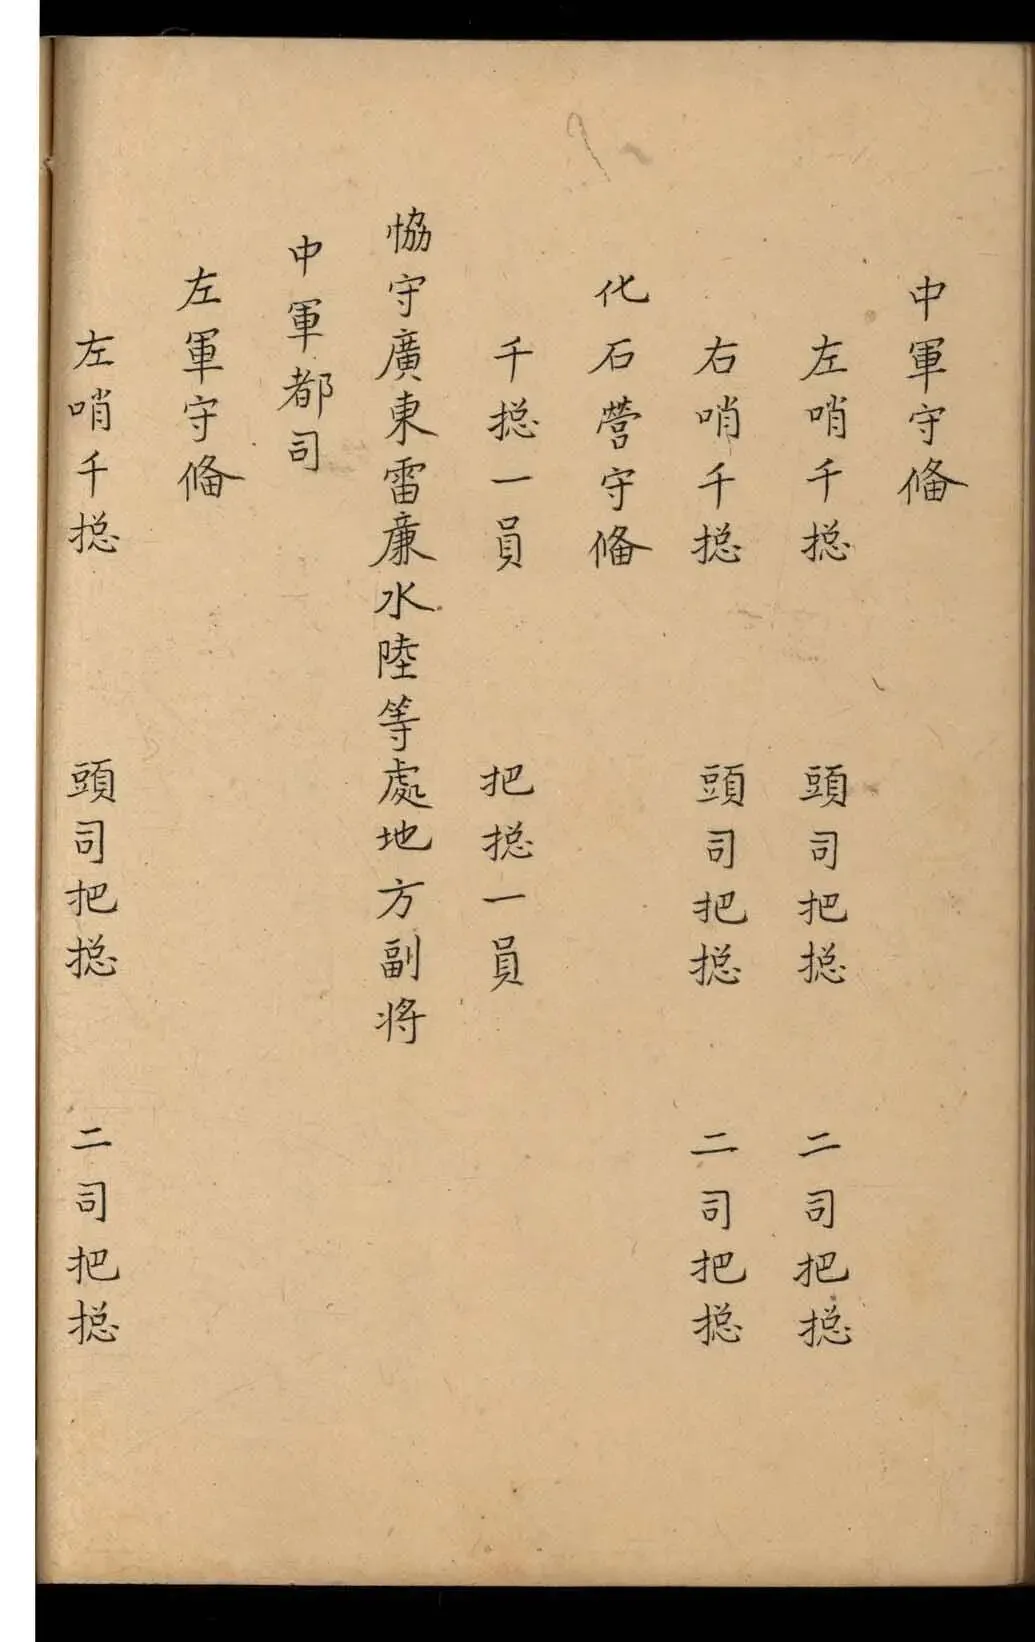 中軍守備
左哨千捴 頭司把捴 二司把捴
右哨千捴 頭司把捴 二司把捴
化石營守備
千捴一員 把捴一員
恊守廣東雷廉水陸等處地方副将
中軍都司
左軍守備
左哨千捴 頭司把捴 二司把捴